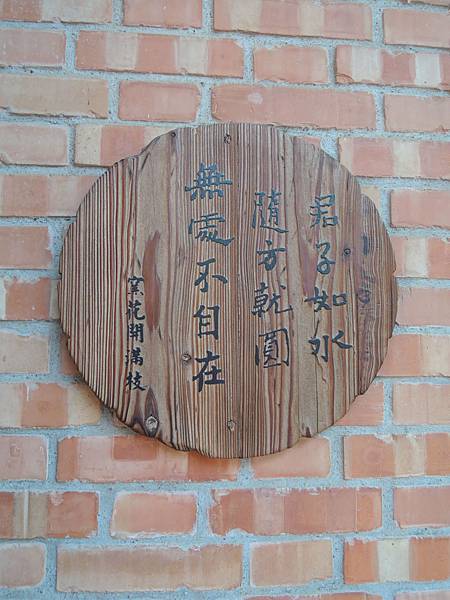 君子如水
隨方就圓
無處不自在
窯花開滿枝